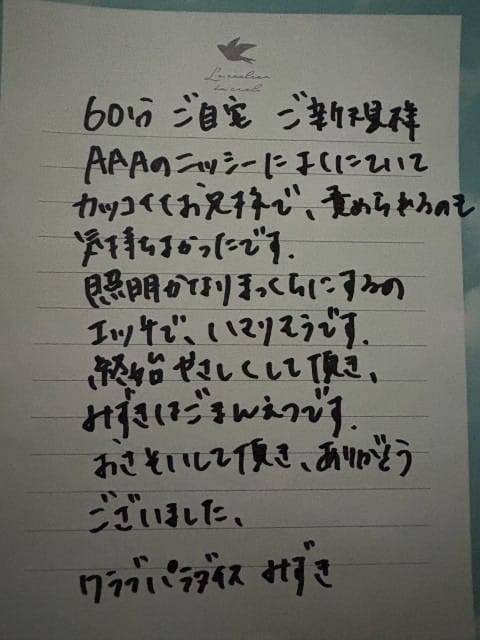 60分 ご自宅 ご新規様
AAAのニッシーによくにていて
カッコイイお兄様で、責められるのも
気持ちよかったです.
照明かなりまっくらにするの
エッチで、いマリそうです.
終始やさしくして頂き、
みずきはごまんえつです.
おさそいして頂き、ありがとう
ございました、
クラブパラダイス みずき